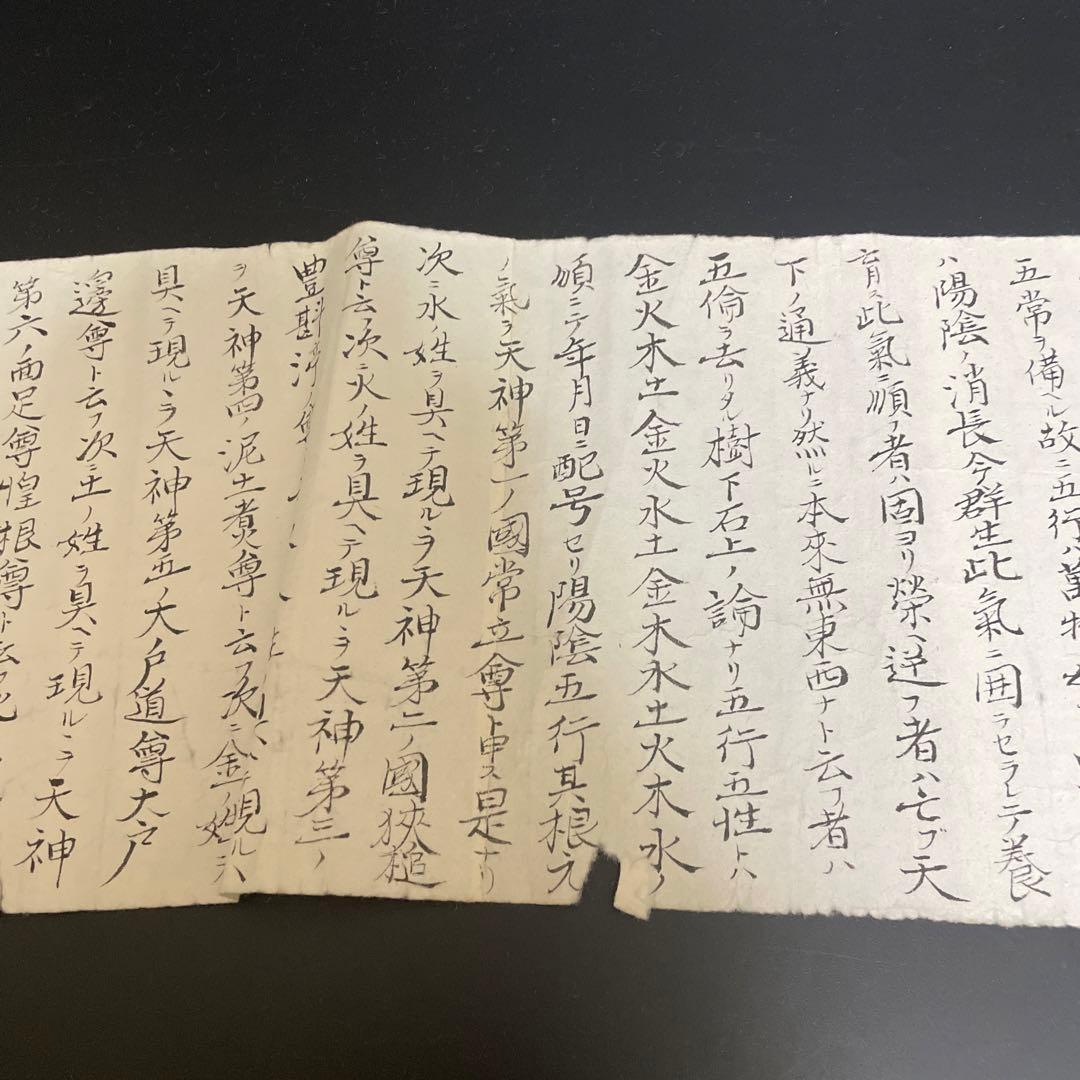 五常ヲ備ヘル故ニ五行ハ萬物
ハ陽陰ノ消長今群生此氣ニ囲ラセラレテ養
育ス此氣ニ順フ者ハ固ヨリ榮ヘ逆フ者ハ亡ブ天
下ノ通義ナリ然ルニ本來無東西ナト云フ者ハ
五倫ヲ去リタル樹下石上ノ論ナリ五行五性トハ
金火木土金火水土金木水土火木水ノ
順ニテ年月日ニ配号セリ陽陰五行其根元
ノ氣ヲ天神第一ノ國常立尊ト申ス是ナリ
次ニ水ノ姓ヲ具ヘテ現ルヽヲ天神第二ノ國狹槌
尊ト云フ次ニ火ノ姓ヲ具ヘテ現ルヽヲ天神第三ノ
豊斟渟ノ尊
ヲ天神第四ノ泥土煮尊ト云フ次ニ金ノ姓
具ヘテ現ルヽヲ天神第五ノ大戸道尊大戸
邊尊ト云フ次ニ土ノ姓ヲ具ヘテ現ルヽヲ天神
第六ノ面足尊惶根尊ト云フ